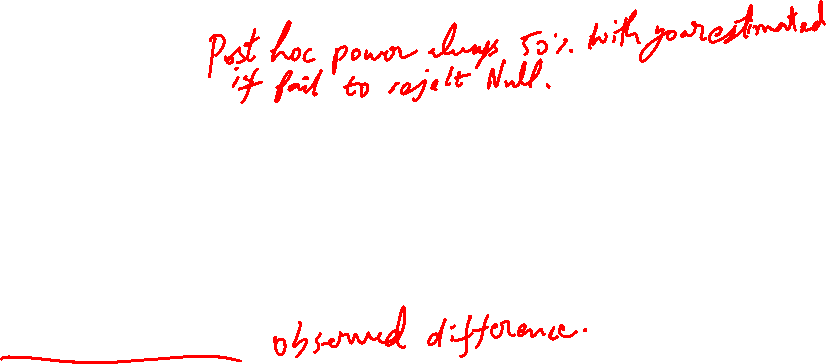 Post hoc power always 50% with your estimated
if fail to reject Null.
observed difference.